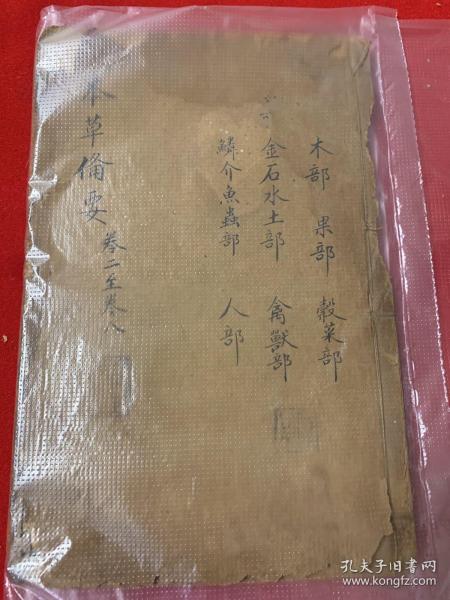 木部 果部 穀菜部
金石水土部 禽獸部
鱗介魚蟲部 人部
本草備要 卷二至卷八
孔夫子旧书网
www.kongfz.com